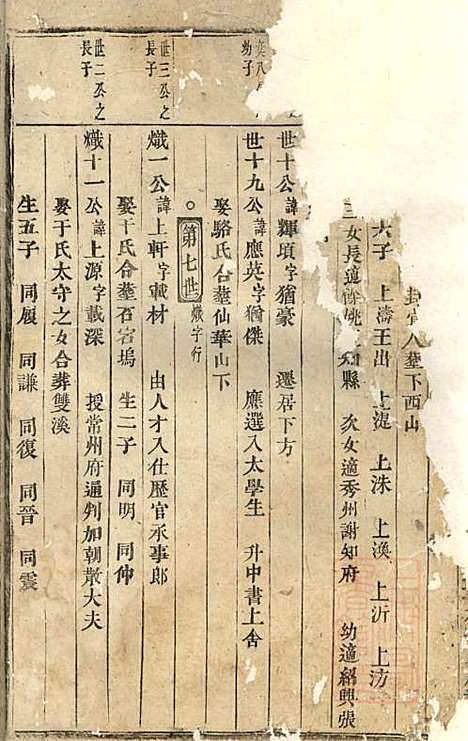 封官人葬下西山
六子 上濤王出 上湜 上洙 上渙 上沂 上汸
三女長適餘姚 知縣 次女適秀州謝知府 幼適紹興張
世十公諱輝項字猶豪 遷居下方
世十九公諱應英字猶傑 應選入太學生 升中書上舍
幼子
娶駱氏合葬仙華山下
第七世 熾字行
世三公之
長子
熾一公諱上軒字載材 由人才入仕歷官承事郎
娶于氏合葬石宕塢 生二子 同明 同仲
世二公之
長子
熾十一公諱上源字載深 授常州府通判加朝散大夫
娶于氏太守之女合葬雙溪
生五子 同履 同謙 同復 同晉 同震